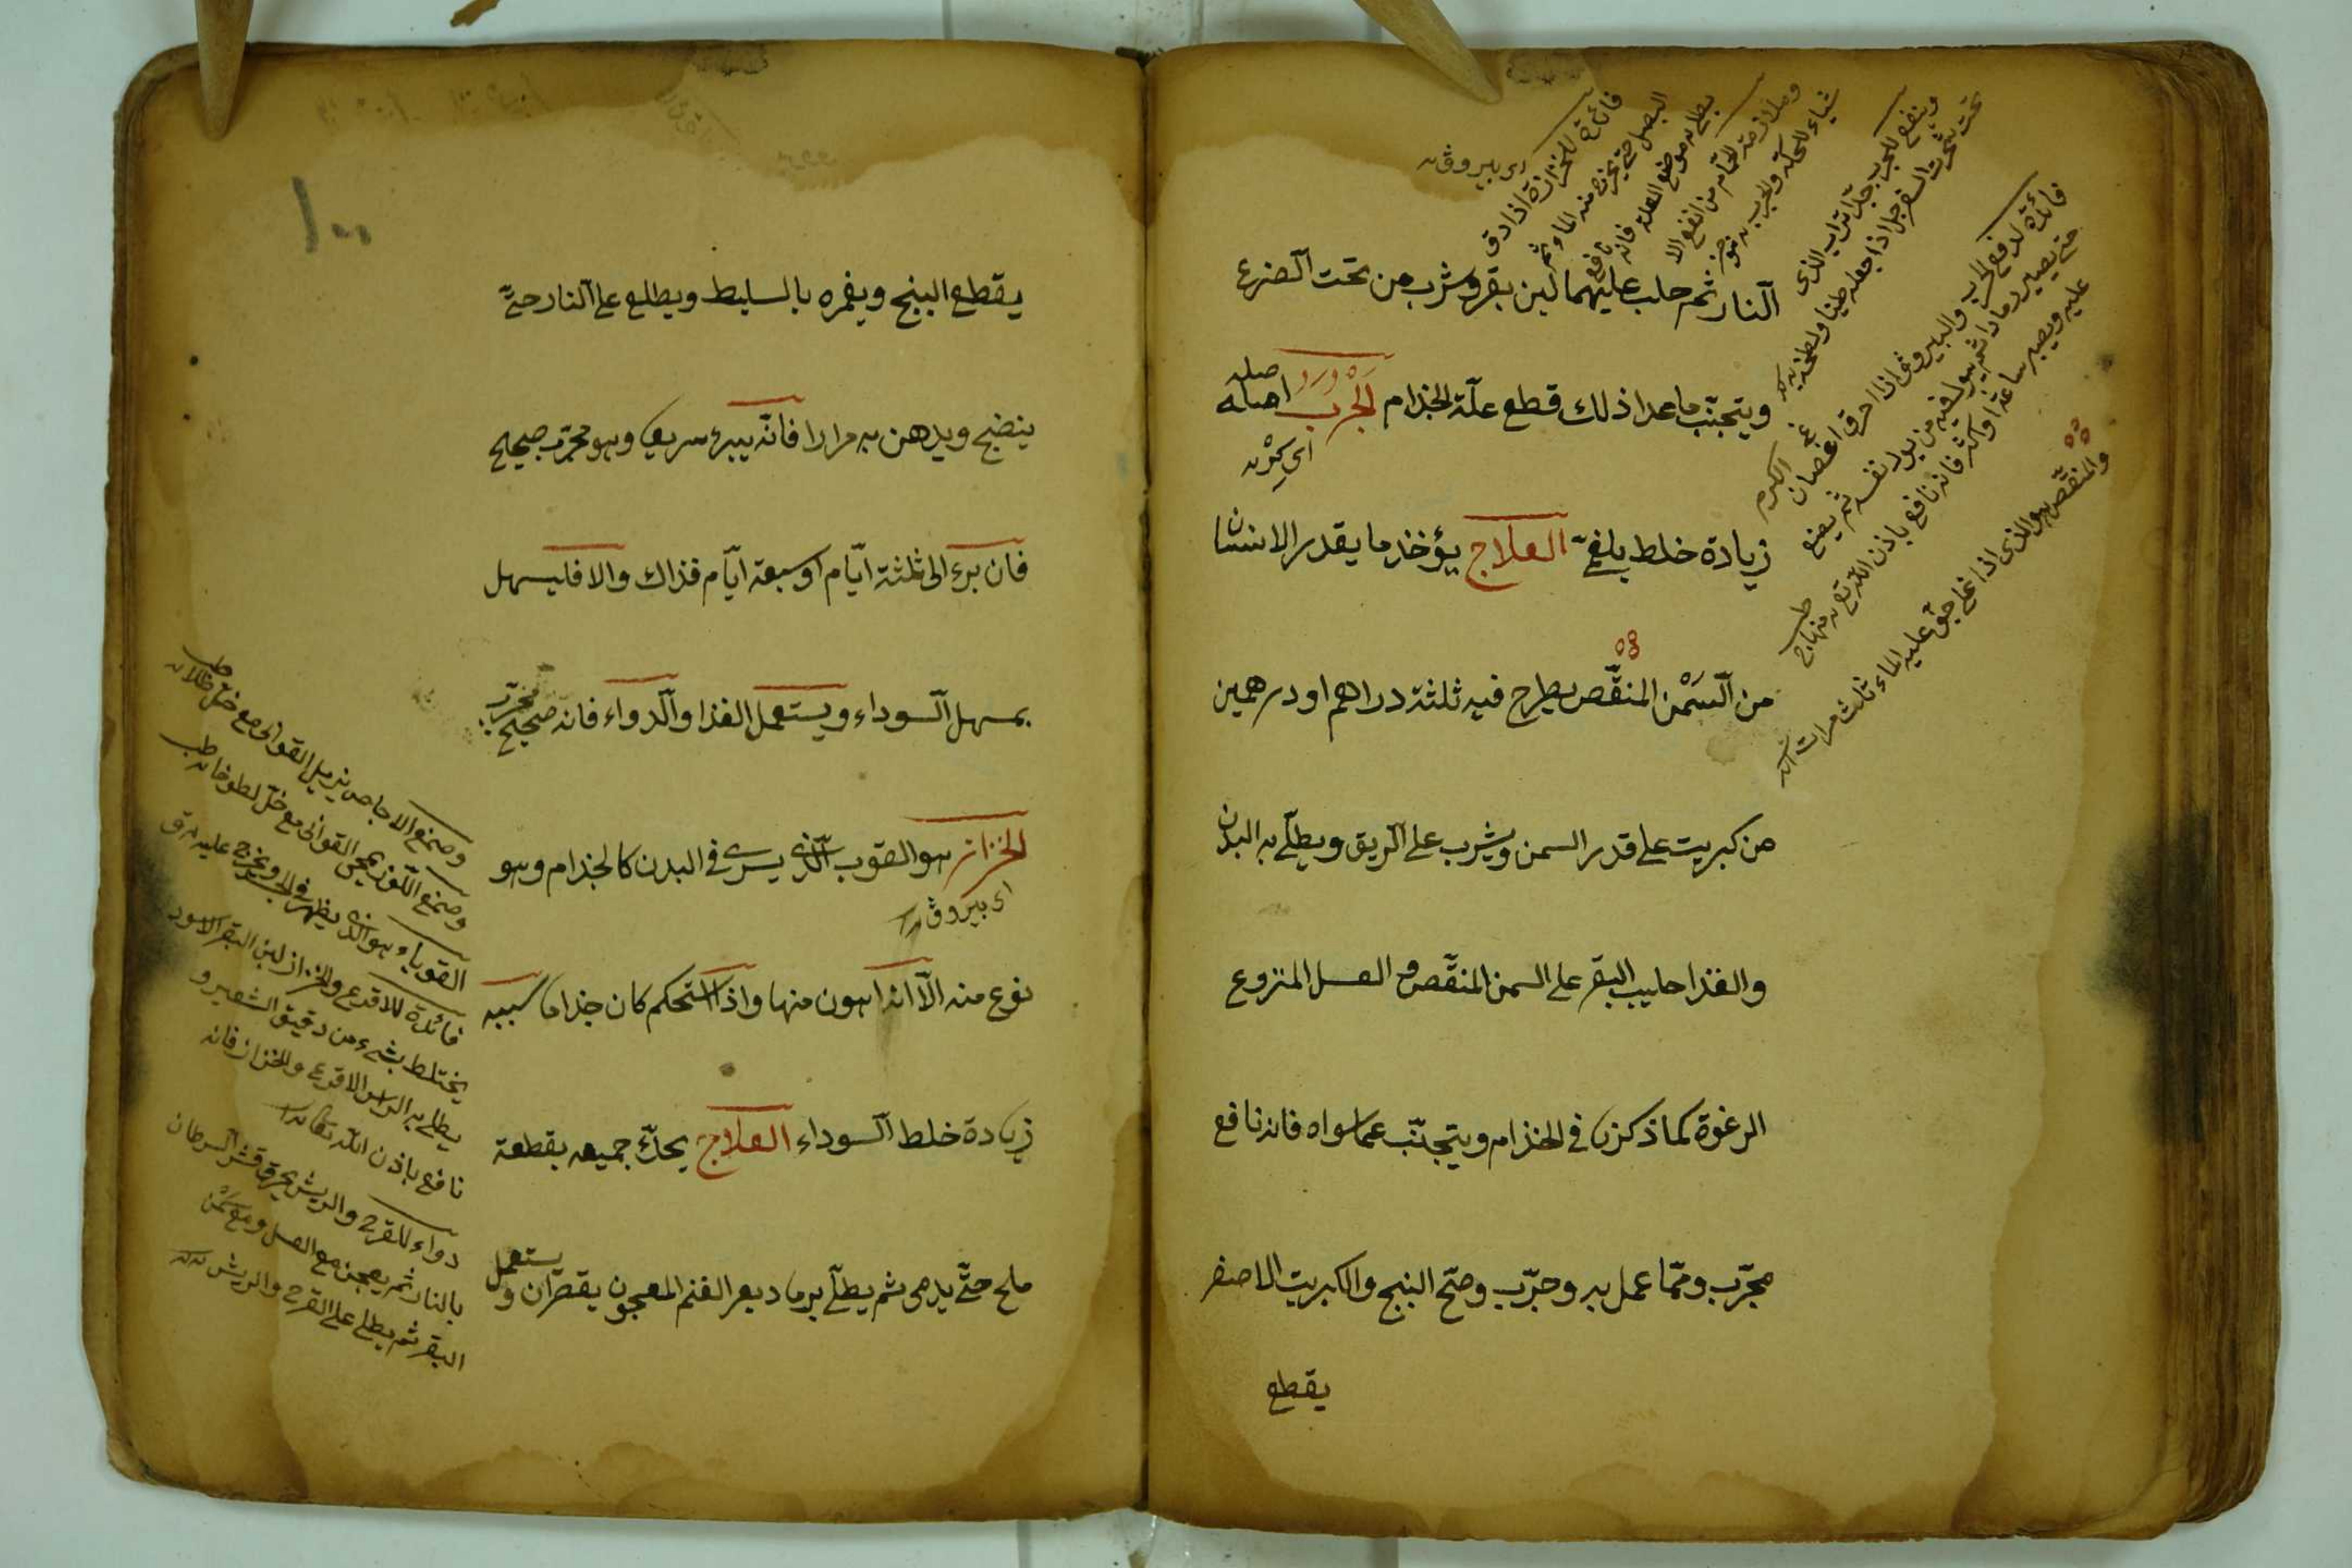 النار ثم حلب عليهما لبن بقر وشرب من تحت الضرع
ويتجنّب ما عدا ذلك قطع علّة الجذام الجرب اصله
اصله
زيادة خلط بلغمىّ العلاج يؤخذ ما يقدر الانسان
من السَمْن المنقّص يطرح فيه ثلثة دراهم او درهمين
من كبريت على قدر السمن ويشرب على الريق ويطلى به البدن
والغذا حليب البقر على السمن المنقّص و العسل المنزوع
الرغوة كما ذكرنا في الجذام ويتجنّب عما سواه فانه نافع
مجرّب وممّا عمل به وجرّب وصحّ البنج والكبريت الاصفر
يقطع
فائدة للخزازة اذا دق
البصل حتى يخرج منه الماء ثم
يطلى به موضع العلة فانه نافع
وملازمة الحمّام من انفع الا
شياء للحكة والجرب
وينفع للجرب جدّا تراب الذى
تحت شجرة السفرجل اذا جعله طينا ولطخه به
فائدة لدفع الجرب اذا احرق اغصان الكرم
حتى يصير رمادا ثم يبول فيه من بول نفسه ثم يضع
عليه ويصبر ساعة او اكثر فانه نافع باذن الله
والمنقّص هو الذى اذا غلى صبّ عليه الماء ثلث مرات
١٠٠
يقطع البنج ويغمره بالسليط ويطلع على النار حتىّ
ينضج ويدهن به مرارا فانّه يبرء سريعا وهو مجرّب صحيح
فان برء الى ثلثة ايّام او سبعة ايّام فذاك والا فليسهل
بمسهل السوداء ويستعمل الغذا والدواء فانه صحيح مجرّب
الخزاز هو القوب الّذى يسرى فى البدن كالجذام وهو
نوع منه الاّ انه اهون منها واذا استحكم كان جذاما سببه
زيادة خلط السوداء العلاج يحكّ جميعه بقطعة
ملح حتّى يدمى ثم يطلى برماد بعر الغنم المعجون بقطران و يستعمل
وصمغ الاجاص يزيل القوابى مع خلّ طلا
وصمغ اللوز يمحى القوابى مع خلّ لطوخا
القوباء هو الذى يظهر فى الجسد ويخرج عليه
فائدة للاقرع والخزاز لبن البقر الاسود
يختلط بشىء من دقيق الشعير و
يطلى به الراس الاقرع والخزاز فانه
نافع باذن الله تعالى
دواء للقرح والريش يحرق قشر السرطان
بالنار ثم يعجن مع العسل ومع سمن
البقر ثم يطلى على القرح والريش